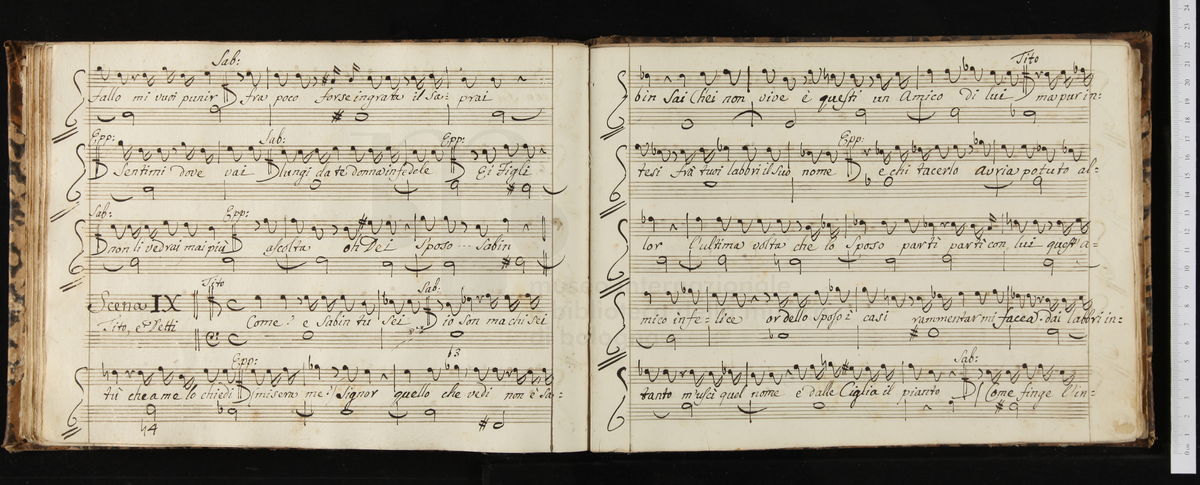 Sab:
fallo mi vuoi punir fra poco forse ingrata il sa- prai
Epp: Sab: Epp:
Sentimi dove vai lungi da te donna infedele Ei Figli
Sab: Epp:
non li vedrai mai più ascolta oh Dei Sposo ... Sabin
Tito Sab:
Scena IX Come? e Sabin tu Sei io son ma chi sei
Tito, e Detti
Epp: b3
tù che a me lo chiedi (misera me!) Signor quello che vedi non è Sa-
♮4
Tito
bin Sai Ch'ei non vive è questi un Amico di lui ma pur in-
Epp:
tesi frà tuoi labbri il Suo nome e chi tacerlo Avria potuto al-
lor l'ultima volta che lo Sposo partì partì con lui quest'a-
mico infe- lice or dello Sposo i casi rammentar mi facea. dai labbri in-
Sab:
tanto m'uscì quel nome e dalle Ciglia il pianto (Come finge l'in-